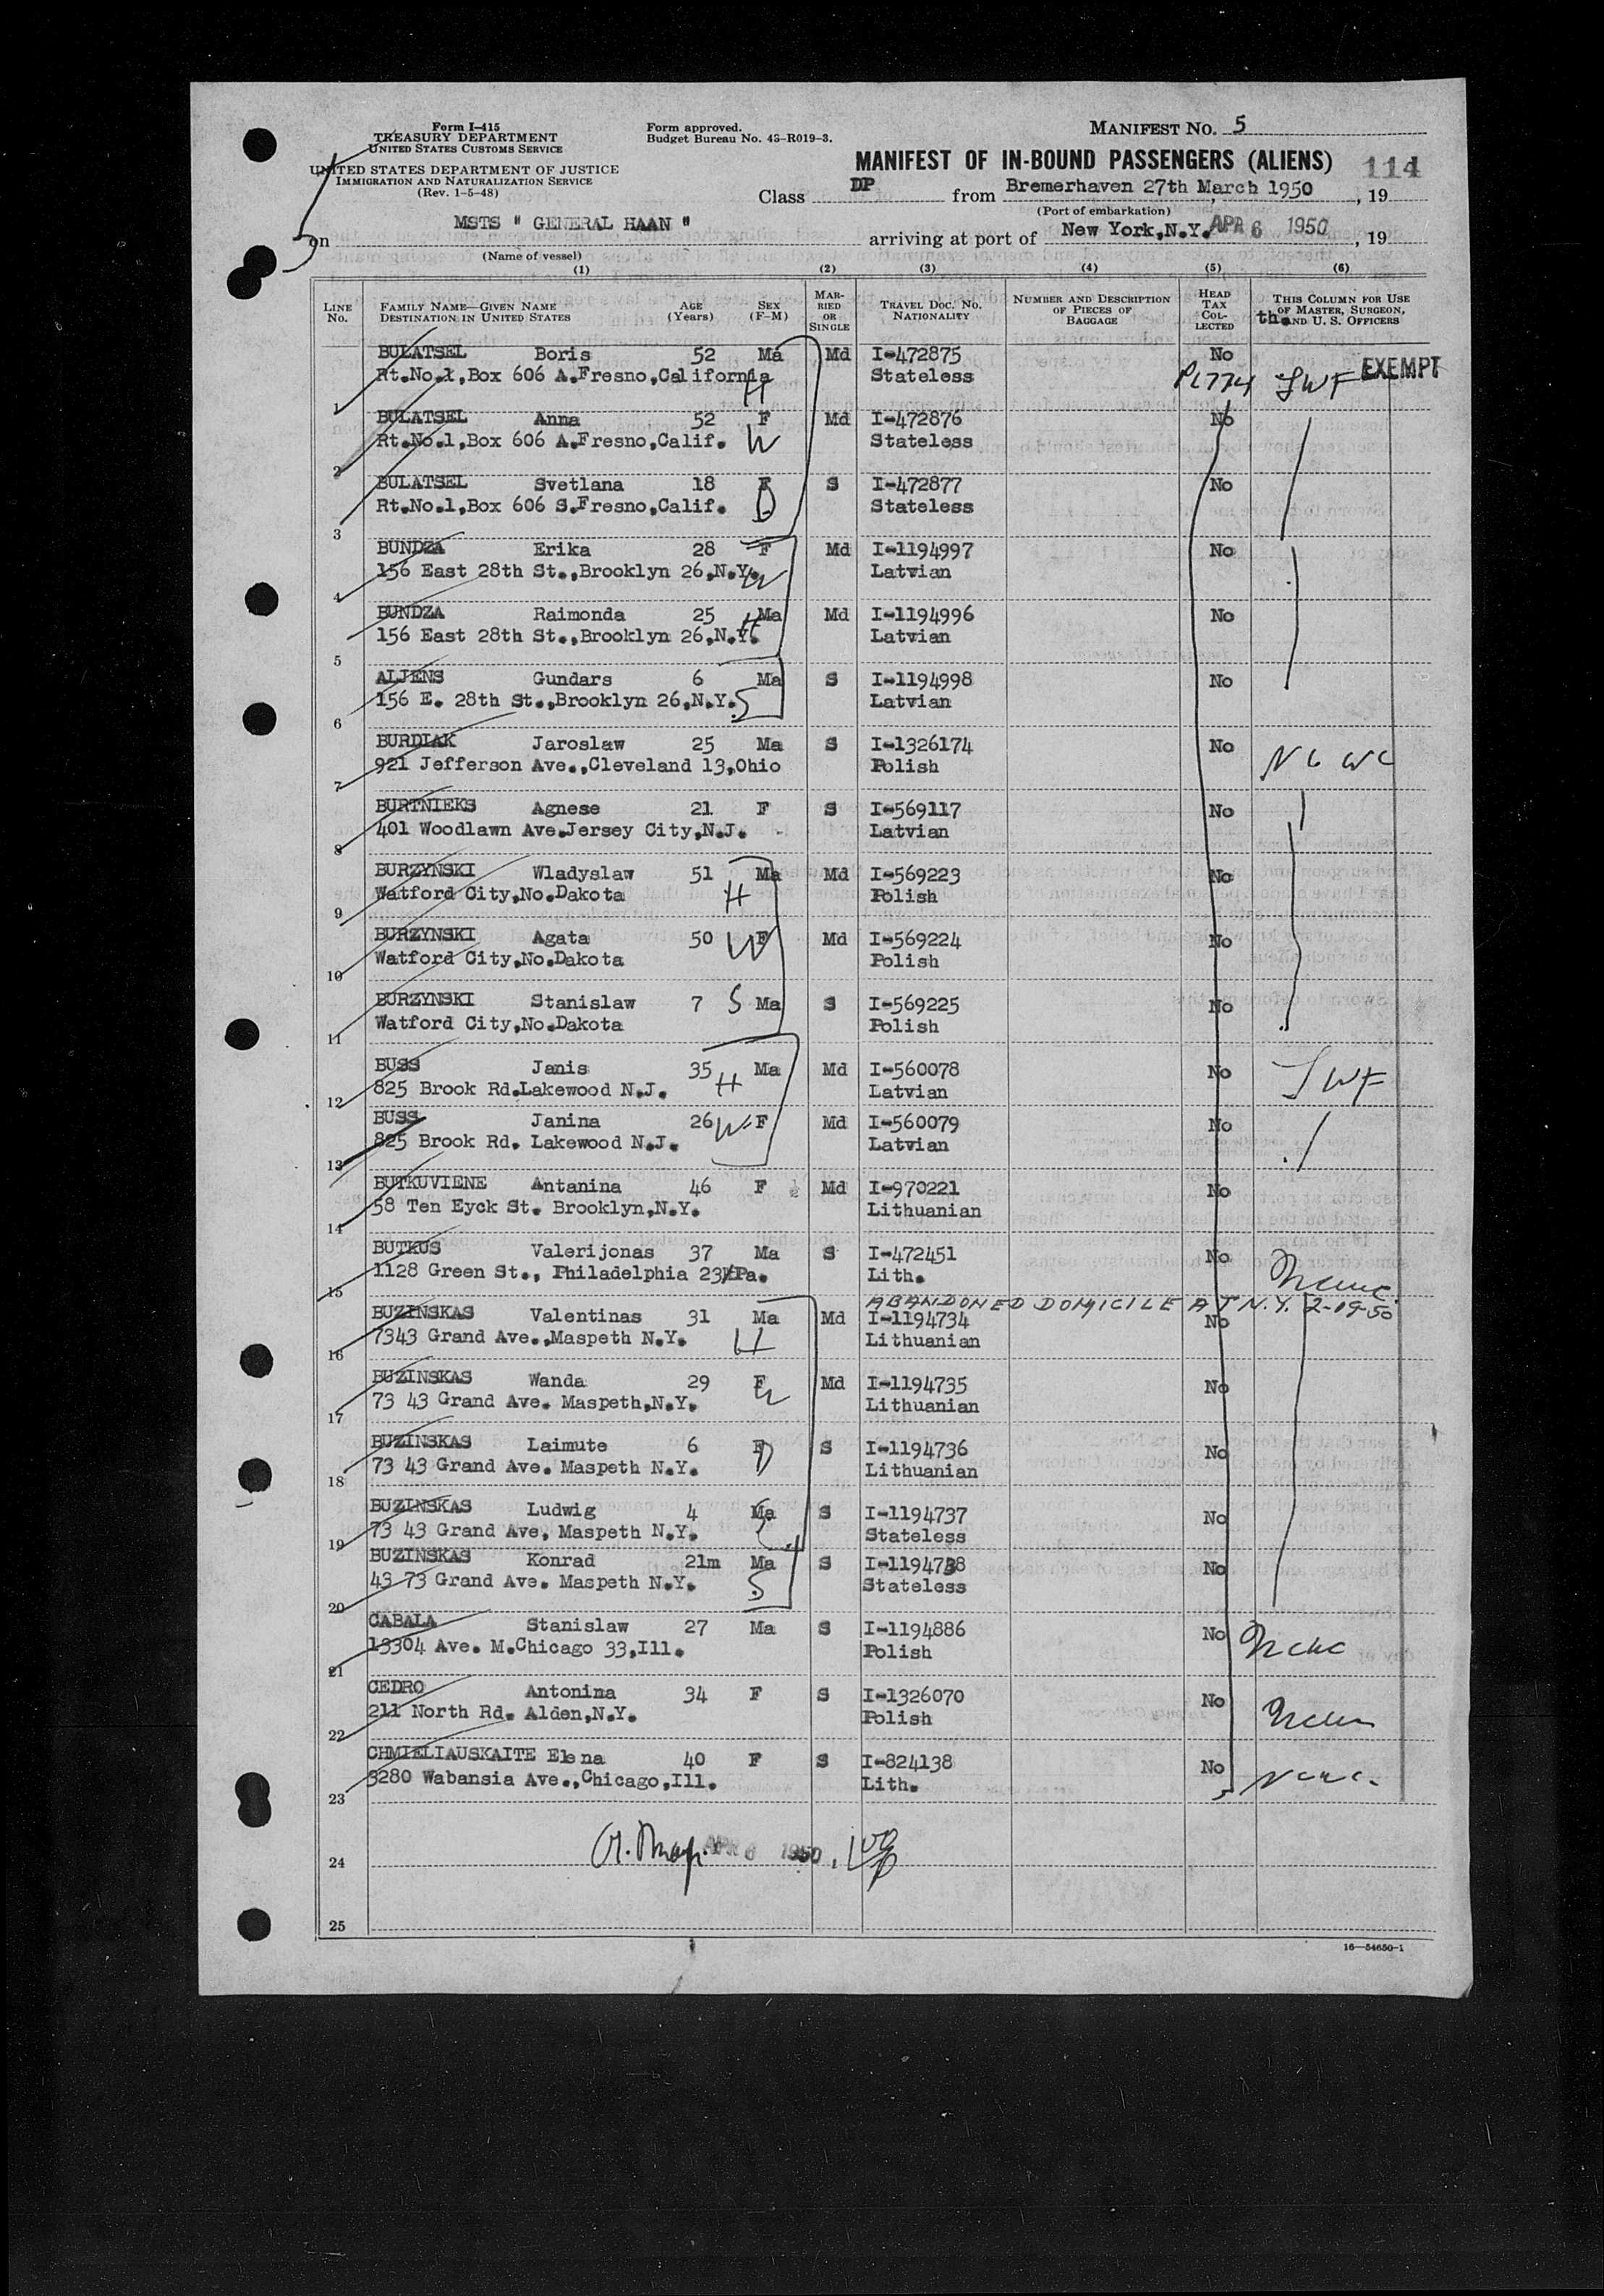 Form I-415
TREASURY DEPARTMENT
UNITED STATES CUSTOMS SERVICE
UNITED STATES DEPARTMENT OF JUSTICE
IMMIGRATION AND NATURALIZATION SERVICE
(Rev. 1-5-48)
Form approved.
Budget Bureau No. 43-R019-3.
MANIFEST No. 5
MANIFEST OF IN-BOUND PASSENGERS (ALIENS) 114
Class DP from Bremerhaven 27th March 1950, 19
(Port of embarkation)
on MSTS " GENERAL HAAN " arriving at port of New York,N.Y. APR 6 1950, 19
(Name of vessel)
(1) (2) (3) (4) (5) (6)
LINE No. FAMILY NAME—GIVEN NAME DESTINATION IN UNITED STATES AGE (Years) SEX (F-M) MARRIED OR SINGLE TRAVEL DOC. NO. NATIONALITY NUMBER AND DESCRIPTION OF PIECES OF BAGGAGE HEAD TAX COLLECTED THIS COLUMN FOR USE OF MASTER, SURGEON, AND U. S. OFFICERS
the
BULATSEL Boris 52 Ma Md I-472875 No
1 Rt.No.1,Box 606 A.Fresno,California H Stateless PL774 LWF EXEMPT
BULATSEL Anna 52 F Md I-472876 No
2 Rt.No.1,Box 606 A.Fresno,Calif. W Stateless
BULATSEL Svetlana 18 F S I-472877 No
3 Rt.No.1,Box 606 S.Fresno,Calif. D Stateless
BUNDZA Erika 28 F Md I-1194997 No
4 156 East 28th St.,Brooklyn 26,N.Y. W Latvian
BUNDZA Raimonda 25 Ma Md I-1194996 No
5 156 East 28th St.,Brooklyn 26,N.Y. H Latvian
ALJENS Gundars 6 Ma S I-1194998 No
6 156 E. 28th St.,Brooklyn 26,N.Y. S Latvian
BURDIAK Jaroslaw 25 Ma S I-1326174 No
7 921 Jefferson Ave.,Cleveland 13,Ohio Polish NCWC
BURTNIEKS Agnese 21 F S I-569117 No
8 401 Woodlawn Ave.Jersey City,N.J. Latvian
BURZYNSKI Wladyslaw 51 Ma Md I-569223 No
9 Watford City,No.Dakota H Polish
BURZYNSKI Agata 50 W F Md I-569224 No
10 Watford City,No.Dakota Polish
BURZYNSKI Stanislaw 7 S Ma S I-569225 No
11 Watford City,No.Dakota Polish
BUSS Janis 35 Ma Md I-560078 No
12 825 Brook Rd.Lakewood N.J. H Latvian LWF
BUSS Janina 26 W F Md I-560079 No
13 825 Brook Rd. Lakewood N.J. Latvian
BUTKUVIENE Antanina 46 F Md I-970221 No
14 58 Ten Eyck St. Brooklyn,N.Y. Lithuanian
BUTKUS Valerijonas 37 Ma S I-472451 No
15 1128 Green St., Philadelphia 23,Pa. Lith. NCWC
ABANDONED DOMICILE AT N.Y.
BUZINSKAS Valentinas 31 Ma Md I-1194734 No
16 7343 Grand Ave.,Maspeth N.Y. H Lithuanian
BUZINSKAS Wanda 29 F Md I-1194735 No
17 73 43 Grand Ave. Maspeth,N.Y. W Lithuanian
BUZINSKAS Laimute 6 F S I-1194736 No
18 73 43 Grand Ave. Maspeth N.Y. D Lithuanian
BUZINSKAS Ludwig 4 Ma S I-1194737 No
19 73 43 Grand Ave, Maspeth N.Y. S Stateless
BUZINSKAS Konrad 21m Ma S I-1194738 No
20 43 73 Grand Ave. Maspeth N.Y. S Stateless
CABALA Stanislaw 27 Ma S I-1194886 No NCWC
21 13304 Ave. M.Chicago 33,Ill. Polish
CEDRO Antonina 34 F S I-1326070 No
22 211 North Rd. Alden,N.Y. Polish NCWC
CHMIELIAUSKAITE Elena 40 F S I-824138 No
23 3280 Wabansia Ave.,Chicago,Ill. Lith. NCWC
24 APR 6 1950
25
16—54650-1